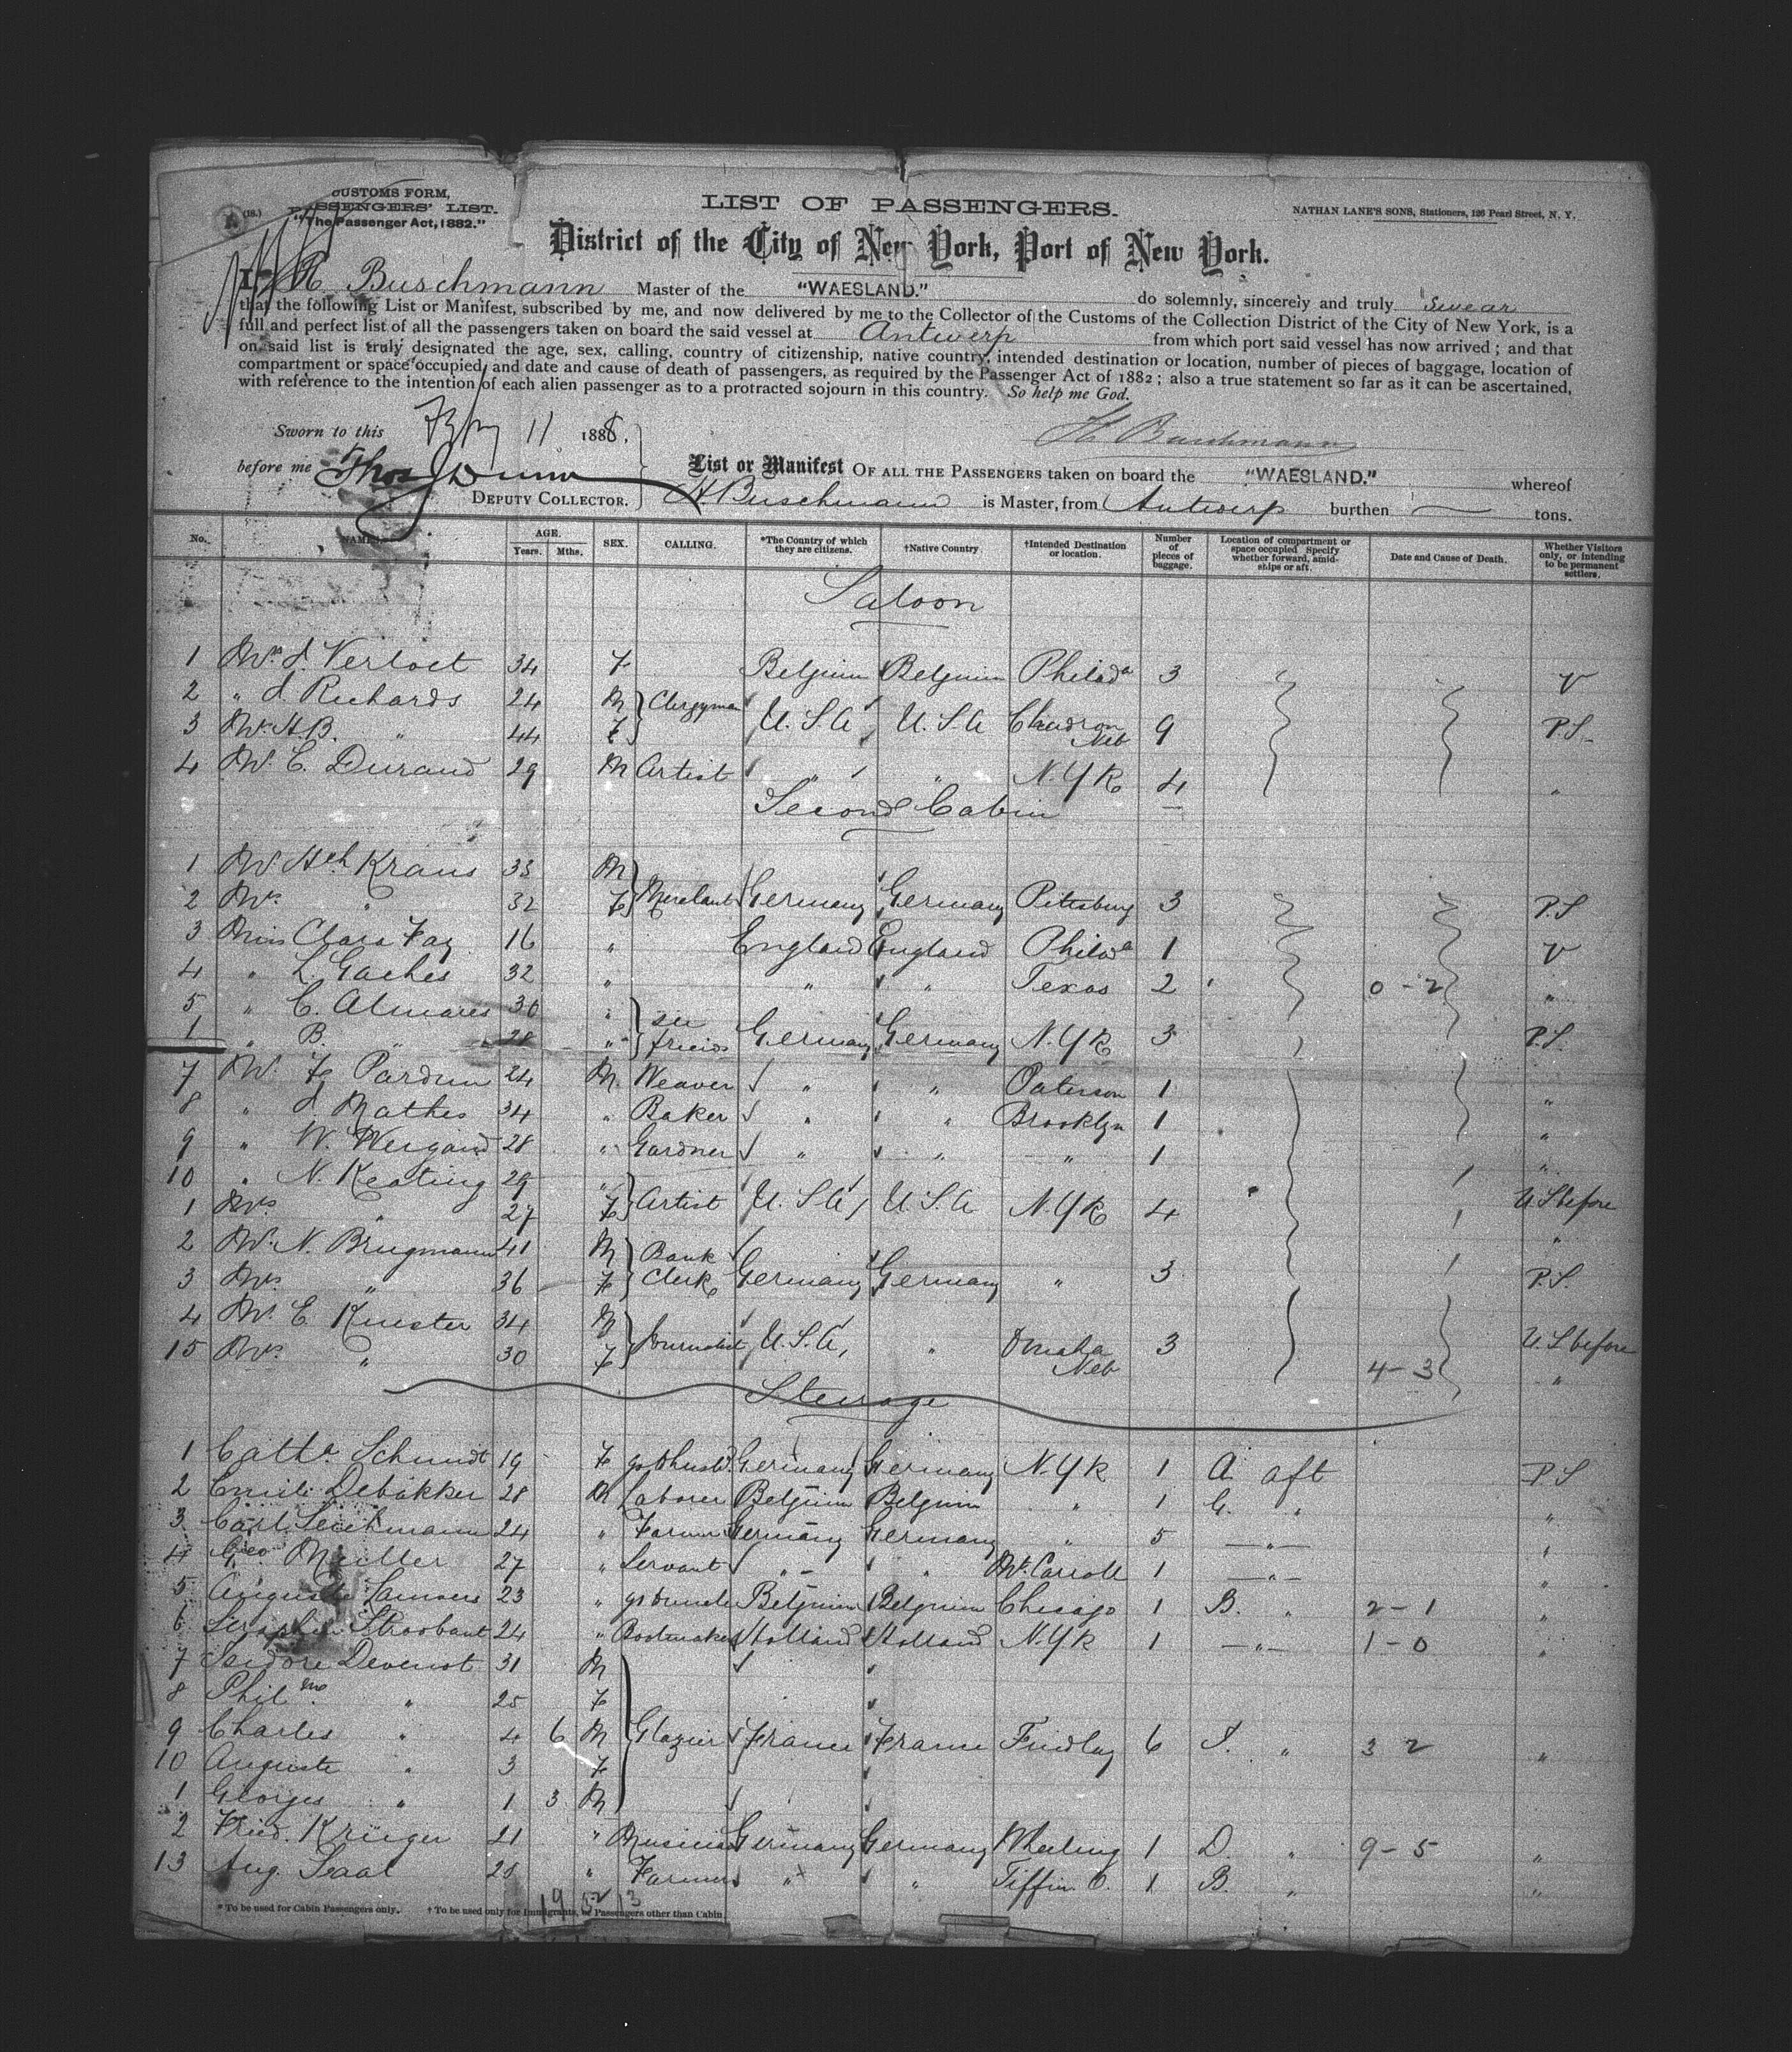 CUSTOMS FORM,
PASSENGERS' LIST.
"The Passenger Act, 1882."
(18.)
LIST OF PASSENGERS.
NATHAN LANE'S SONS, Stationers, 126 Pearl Street, N. Y.
District of the City of New York, Port of New York.
I, H. Buschmann Master of the "WAESLAND." do solemnly, sincerely and truly swear
that the following List or Manifest, subscribed by me, and now delivered by me to the Collector of the Customs of the Collection District of the City of New York, is a
full and perfect list of all the passengers taken on board the said vessel at Antwerp from which port said vessel has now arrived; and that
on said list is truly designated the age, sex, calling, country of citizenship, native country, intended destination or location, number of pieces of baggage, location of
compartment or space occupied, and date and cause of death of passengers, as required by the Passenger Act of 1882; also a true statement so far as it can be ascertained,
with reference to the intention of each alien passenger as to a protracted sojourn in this country. So help me God.
Sworn to this 11 1888.
H Buschmann
before me Thos J Dunn
DEPUTY COLLECTOR.
List or Manifest OF ALL THE PASSENGERS taken on board the "WAESLAND." whereof
H. Buschmann is Master, from Antwerp burthen — tons.
No. NAMES. AGE. Years. Mths. SEX. CALLING. *The Country of which they are citizens. †Native Country. †Intended Destination or location. Number of pieces of baggage. Location of compartment or space occupied. Specify whether forward, amidships or aft. Date and Cause of Death. Whether Visitors only, or intending to be permanent settlers.
Saloon
1 34 F Belgium Belgium Philada 3 V
2 " J. Richards 24 M Clergyman U.S.A U.S.A Chadron Neb 9 P.S.
3 H.B. " 44 F
4 Mr. E. Durand 29 M Artist " " N.Y.K 4 "
Second Cabin
1 Mr Hch Kraus 33 M
2 Mrs " 32 F Germany Germany Pittsburg 3 P.S
3 Miss Clara Fay 16 " England England Philada 1 V
4 " L. Gaches 32 " " " Texas 2 0-2 "
5 " C. 30 "
1 " B. " 28 " see friends Germany Germany N.Y.K 3 P.S.
7 Mr. F. Pardun 24 M. Weaver " " Paterson 1 "
8 " J. Mathes 34 " Baker " " Brooklyn 1 "
9 " W. Weigand 28 " Gardner " " " 1 "
10 " N. Keating 29 "
1 Mrs " 27 F Artist U.S.A U.S.A N.Y.K 4 U S before
"
2 Mr. N. Brugmann 41 M Bank
3 Mrs " 36 F Clerk Germany Germany " 3 P.S.
4 Mr. E. Kuester 34 M
15 Mrs " 30 F Journalist U.S.A, " Omaha Neb 3 4-3 U.S before
"
Steerage
1 Catha Schmidt 19 F Germany Germany N.Y.K 1 A aft P.S
2 Emile Debakker 28 M Laborer Belgium Belgium " 1 G. " "
3 Carl 24 " Farmer Germany Germany " 5 " "
4 Geo Muller 27 " Servant " " Mt. Carroll 1 " "
5 August 23 " Belgium Belgium Chicago 1 B. " 2-1 "
6 Seraphin Stroobant 24 " Bootmaker Holland Holland N.Y.K 1 " 1-0 "
7 Isidore Devenot 31 M
8 Philme " 25 F
9 Charles " 4 6 M Glazier France France Findlay 6 " 3 2 "
10 Auguste " 3 F
1 Georges " 1 3 M
2 Fried. Krüger 21 " Musician Germany Germany Wheeling 1 D. " 9-5 "
13 Aug. Saal 28 " Farmer " " Tiffin O. 1 B. " "
* To be used for Cabin Passengers only. † To be used only for Immigrants, or Passengers other than Cabin.